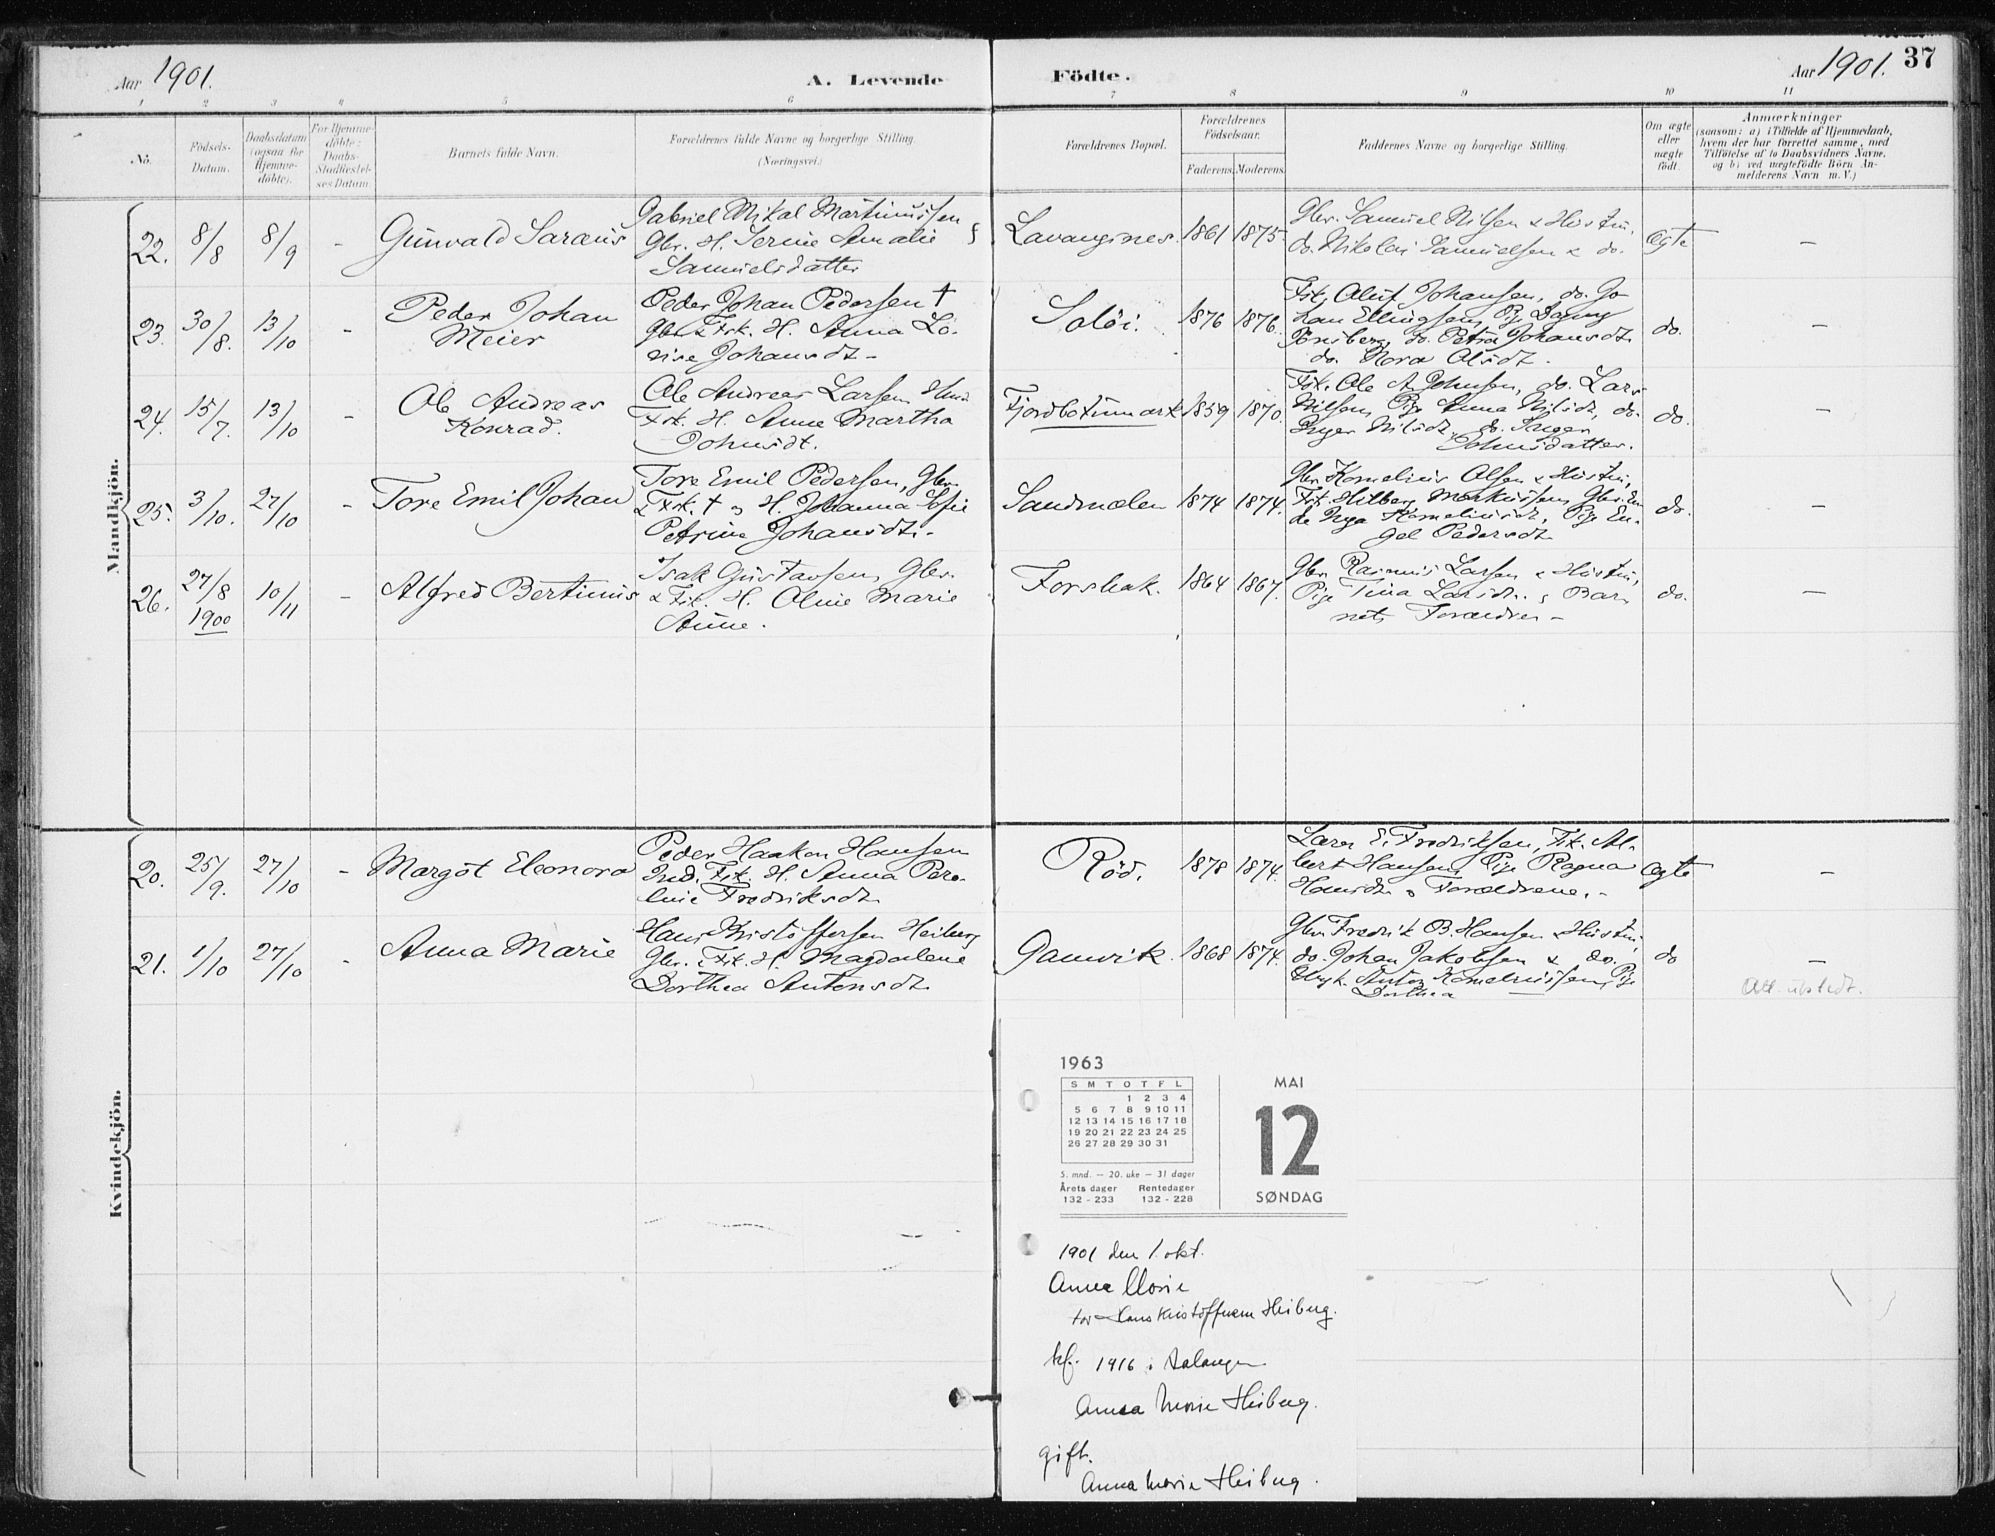 Aar 1901.
A. Levende
Födte.
Aar 1901. 37
1 2 3 4 5 6 7 8 9 10 11
No.
Födsels-
Datum.
Daabsdatum
(ogsaa for
Hjemme-
döbte).
For Hjemme-
döbte:
Daabs-
Stadfæstel-
ses Datum
Barnets fulde Navn.
Forældrenes fulde Navne og borgerlige Stilling.
(Næringsvei.)
Forældrenes Bopæl.
Forældrenes
Födselsaar.
Faderens. Moderens.
Faddernes Navne og borgerlige Stilling.
Om ægte
eller
uægte
født.
Anmærkninger
(saasom: a) i Tilfælde af Hjemmedaab,
hvem der har forrettet samme, med
Tilföielse af to Daabsvidners Navne,
og b) ved uægtefödte Börn An-
melderens Navn m. V.)
Mandkjön.
22. 8/8 8/9 - Gunvald Saraus
Gabriel Mikal Martinussen
Gbr. H. Serine Amalie
Samuelsdatter
Lavangsnes. 1861 1875.
Gbr. Samuel Nilsen & Hustru,
do. Nikolai Samuelsen & do.
Ægte –
23. 30/8. 13/10 - Peder Johan
Meier
Peder Johan Pedersen †
Gbr. & Fsk. H. Anna Lo-
vise Johansdt –
Salöi. 1876 1876.
Fsk. Oluf Johansen, do. Jo
han Ellingsen, Pige Dagny
Tönsberg, do. Petra Johansdt.
do. Nora Olsdt.
do. –
24. 15/7. 13/10 - Ole Andreas
Konrad.
Ole Andreas Larsen,
Fsk. H. Anne Martha
Johnsdt.
Fjordbotnmark 1859 1870.
Fsk. Ole A. Johnsen, do. Lars
Nilsen, Pige Anna Nilsdt, do.
Inger Nilsdt. do. Inger
Johnsdatter.
do. –
25. 3/10. 27/10 - Tore Emil Johan
Tore Emil Pedersen, Gbr.
& Fsk. † og H. Johanna Sofie
Petrine Johansdt. –
Sandmælen 1874 1874.
Gbr. Kornelius Olsen & Hustru,
Fsk. Hilberg Markussen, Gbr. En
ke Inga Korneliusdt, Pige En-
gel Pedersdt.
do. –
26. 27/8
1900 10/11 - Alfred Bertinus
Isak Gustavsen, Gbr.
& Fsk. H. Oline Marie
Anne.
Forshak. 1864 1867.
Gbr. Rasmus Larsen & Hustru,
Pige Tina Larsdt. & Bar
nets Forældre –
do. –
Kvindekjön.
20. 25/9. 27/10 - Margot Eleonora
Peder Haakon Hansen
Ind. Fsk. H. Anna Pere-
line Fredriksdt.
Röd. 1878 1874.
Lærer E. Fredriksen, Fsk. Al-
bert Hansen, Pige Ragna
Hansdt. & Forældrene. –
Ægte –
21. 1/10 27/10 - Anna Marie
Hans Kristoffersen Heiberg
Gbr. & Fsk. H. Magdalene
Dorthea Antonsdt.
Ganvik. 1868 1874.
Gbr. Fredrik B. Hansen & Hustru,
do. Johan Jakobsen & do.
Ungk. Anton Korneliussen, Pige
Dorthea
do –
Att. utstedt.
1963
S M T O T F L
1 2 3 4
5 6 7 8 9 10 11
12 13 14 15 16 17 18
19 20 21 22 23 24 25
26 27 28 29 30 31
5. mnd. – 20. uke – 31 dager
Årets dager Rentedager
132 - 233 132 - 228
MAI
12
SØNDAG
1901 den 1. okt.
Anna Marie
far Hans Kristoffersen Heiberg.
kf. 1916 i Salangen
Anna Marie Heiberg.
gift.
Anna Marie Heiberg.